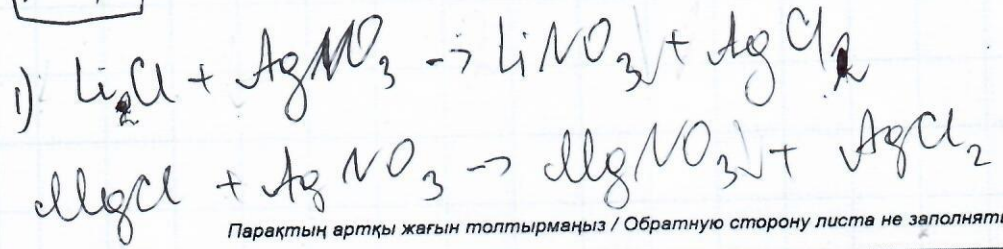 1) Li₂Cl + AgNO₃ → LiNO₃ + AgCl₂
MgCl + AgNO₃ → MgNO₃ + AgCl₂
Парақтың артқы жағын толтырмаңыз / Обратную сторону листа не заполнять